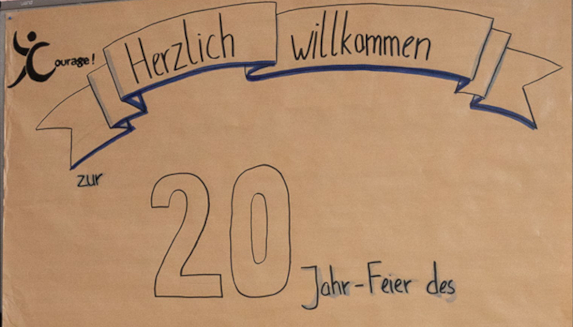 Courage!
Herzlich willkommen
zur
20
Jahr-Feier des